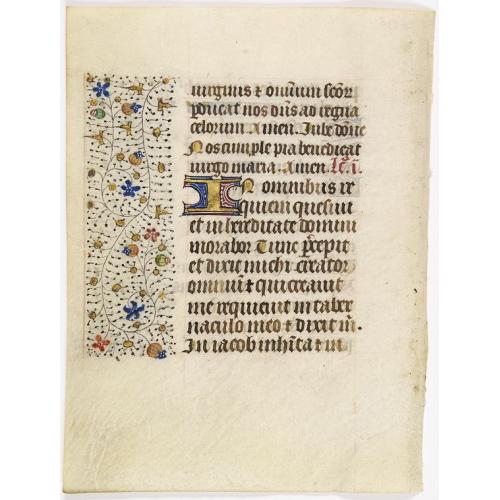 uirginis ⁊ omnium scor
pducat nos dns ad regna
celorum Amen. Iube done
Nos cum ple pia benedicat
uirgo maria. Amen. lc̄. i.
In omnibus re
quiem quesiui
et in hereditate domini
morabor Tunc precepit
et dixit michi creator
omniū ⁊ qui creauit
me requieuit in taber
naculo meo ⁊ dixit m̄.
In iacob inhīta ⁊ in